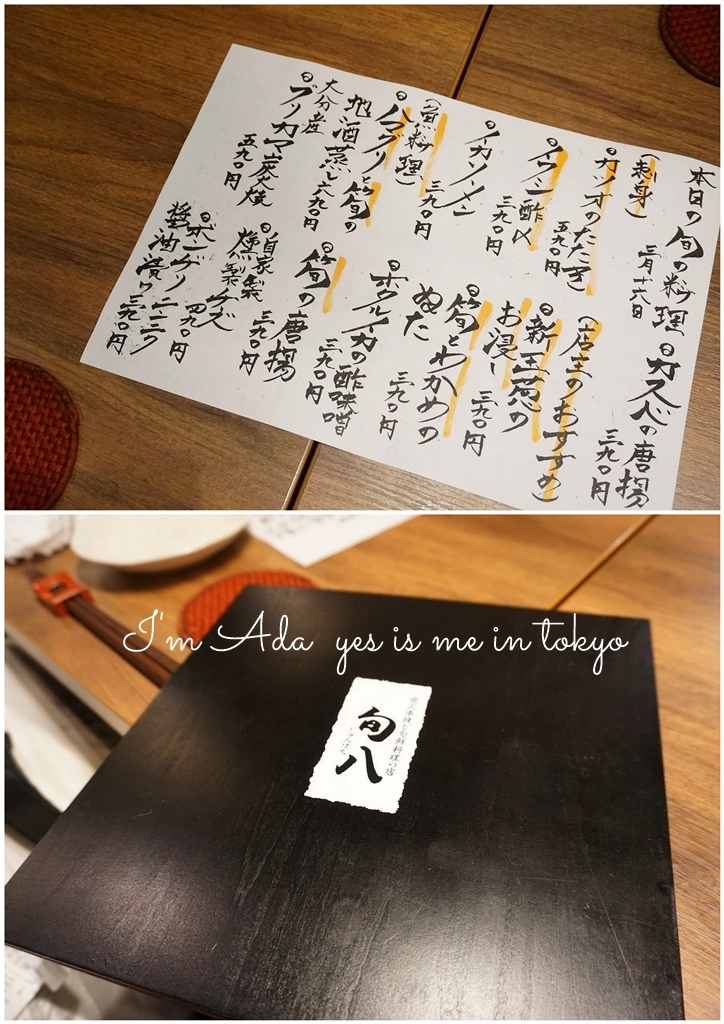 本日の旬の料理
三月十六日
(刺身)
◦カツオのたたき
五九〇円
◦イワシ酢〆
三九〇円
◦イカソーメン
三九〇円
(魚料理)
◦ハマグリと筍の
地酒蒸し六九〇円
大分産
◦ブリカマ炭焼
五九〇円
◦ガスベの唐揚
三九〇円
(店主のおすすめ)
◦新玉葱の
お浸し
三九〇円
◦筍とわかめの
ぬた
三九〇円
◦ホタルイカの酢味噌
三九〇円
◦筍の唐揚
三九〇円
自家製
燻製チーズ
◦ボンゴレ
醤油漬け三九〇円
I'm Ada yes is me in tokyo
炭火串焼と旬鮮料理の店
旬八
しゅんぱち